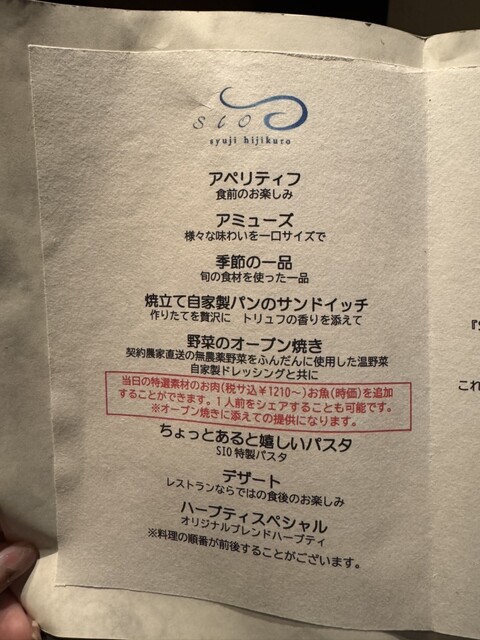 SIO
syuji hijikuro
アペリティフ
食前のお楽しみ
アミューズ
様々な味わいを一口サイズで
季節の一品
旬の食材を使った一品
焼立て自家製パンのサンドイッチ
作りたてを贅沢に　トリュフの香りを添えて
野菜のオーブン焼き
契約農家直送の無農薬野菜をふんだんに使用した温野菜
自家製ドレッシングと共に
当日の特選素材のお肉(税サ込￥1210～)お魚(時価)を追加
することができます。1人前をシェアすることも可能です。
※オーブン焼きに添えての提供になります。
ちょっとあると嬉しいパスタ
SIO特製パスタ
デザート
レストランならではの食後のお楽しみ
ハーブティスペシャル
オリジナルブレンドハーブティ
※料理の順番が前後することがございます。
『S
これ